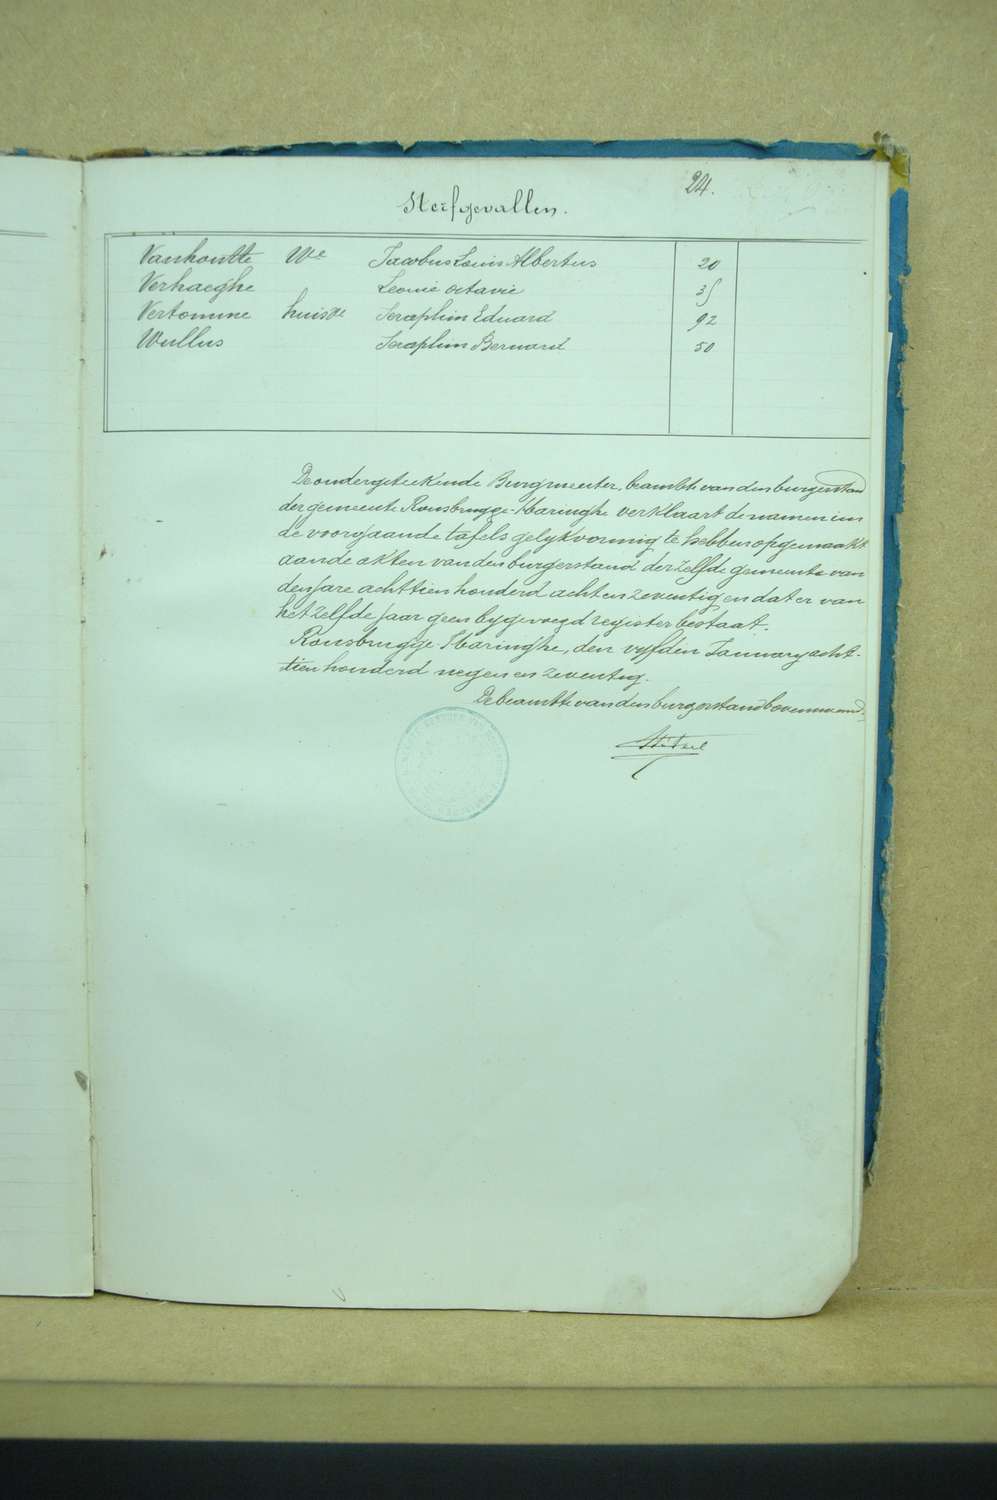 24.
Sterfgevallen.
Vanhoutte We Jacobus Louis Albertus 20
Verhaeghe Leonie Octavie 35
Vertomme huisde Seraphin Eduard 92
Wullus Seraphim Bernard 50
De ondergeteekende Burgmeester, beambte van den burgerstand
der gemeente Rousbrugge-Haringhe verklaart de namen in
de voorgaande tafels gelykvormig te hebben opgemaakt
aan de akten van den burgerstand derzelfde gemeente van
den jare achttien honderd acht en zeventig en dat er van
hetzelfde jaar geen bygevoegd register bestaat.
Rousbrugge-Haringhe, den vyfden January acht-
tien honderd negen en zeventig.
De beambte van den burgerstand bovennoemd,